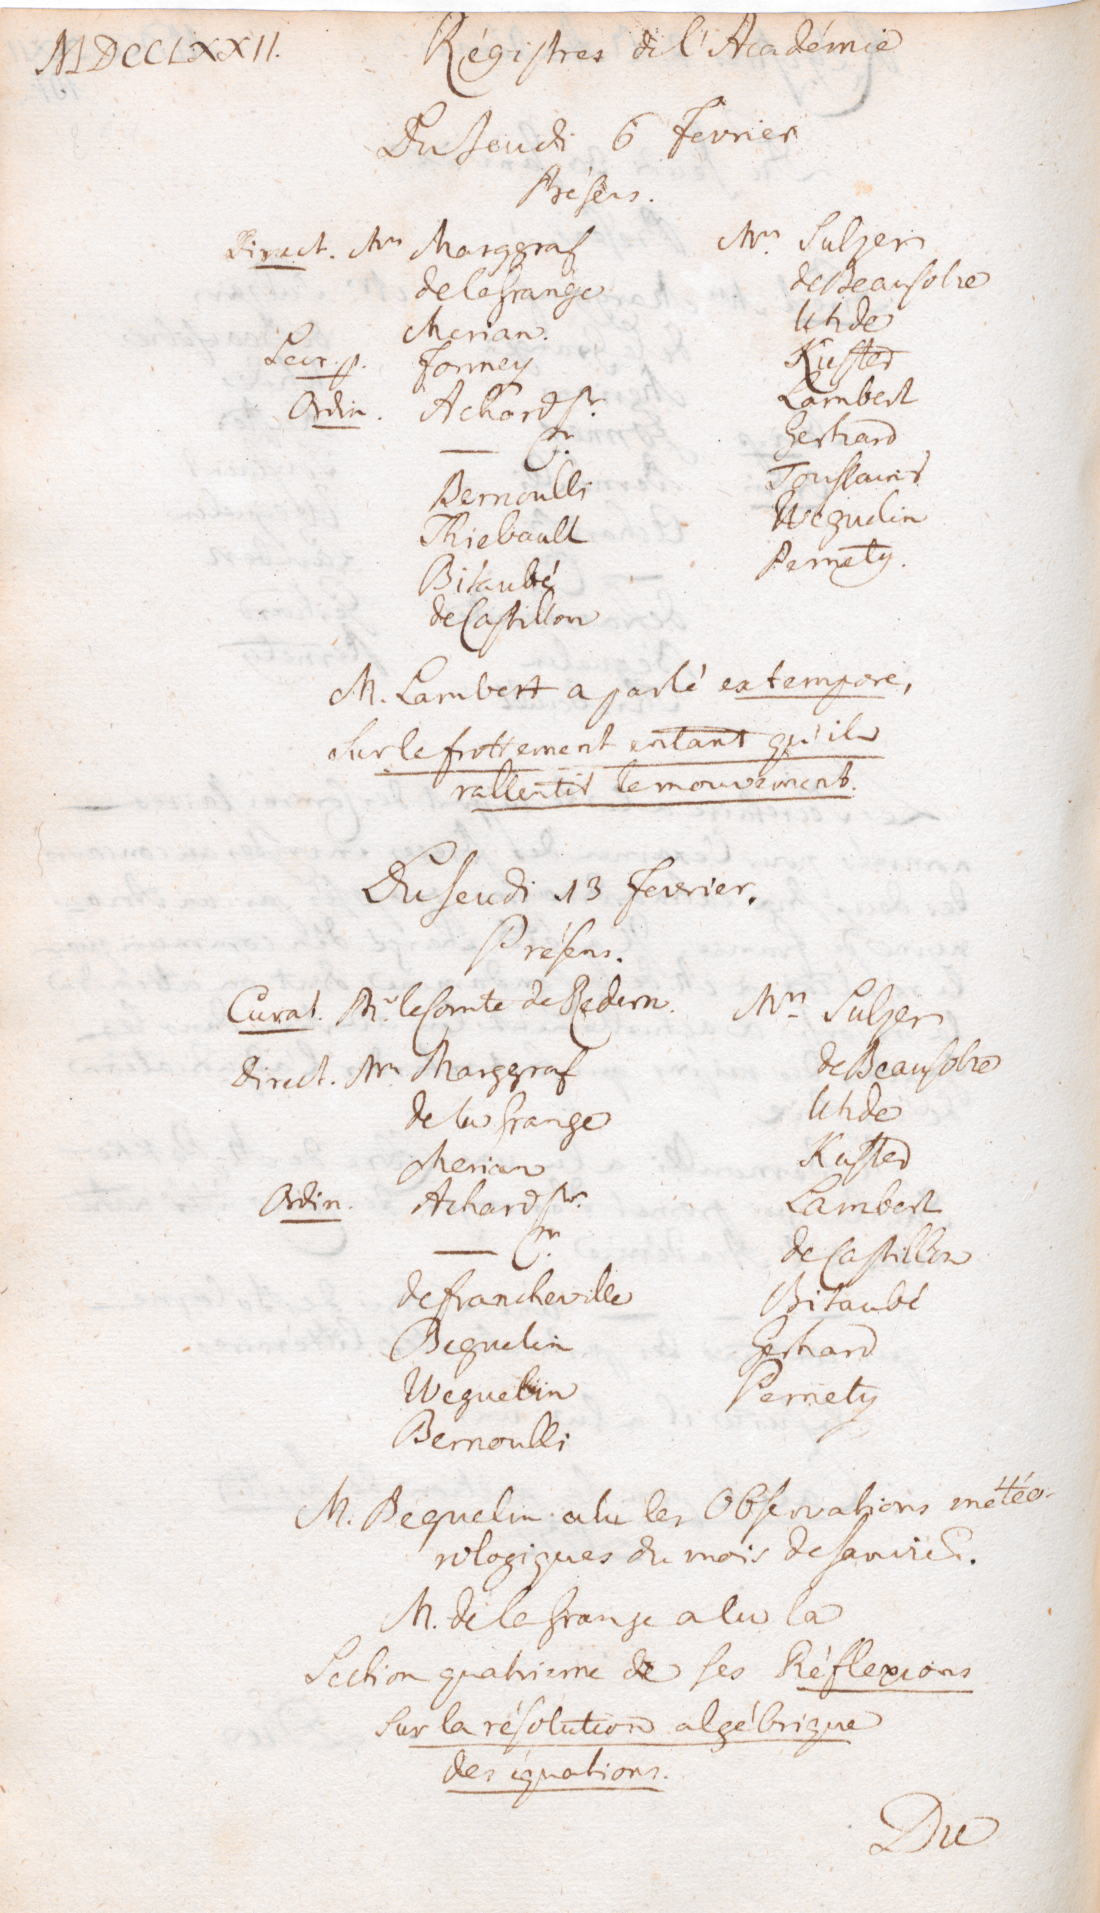 MDCCLXXII. Régistres de l'Académie
Du Jeudi 6 Fevrier
Présens.
Direct. Mrs Marggraf
de la Grange
Merian.
Secr. p. Formey
Ordin. Achard Sr.
— Jr.
Bernoulli
Thiebault
Bitaubé
de Castillon
Mrs. Sulzer
de Beausobre
Uhde
Kuster
Lambert
Gerhard
Toussaint
Weguelin
Pernety.
M. Lambert a parlé ex tempore,
sur le frottement entant qu'il
rallentit le mouvement.
Du Jeudi 13 Fevrier.
Présens.
Curat. Mr. le Comte de Redern.
Direct. Mrs Marggraf
de la Grange
Merian
Ordin. Achard Sr.
— Jr.
de Francheville
Beguelin
Weguelin
Bernoulli
Mrs. Sulzer
de Beausobre
Uhde
Kuster
Lambert
de Castillon
Bitaubé
Gerhard
Pernety
M. Beguelin a lu les Observations météo-
rologiques du mois de Janvier.
M. de la Grange a lu la
Section quatrieme de ses Réflexions
sur la résolution algébrique
des équations.
Du